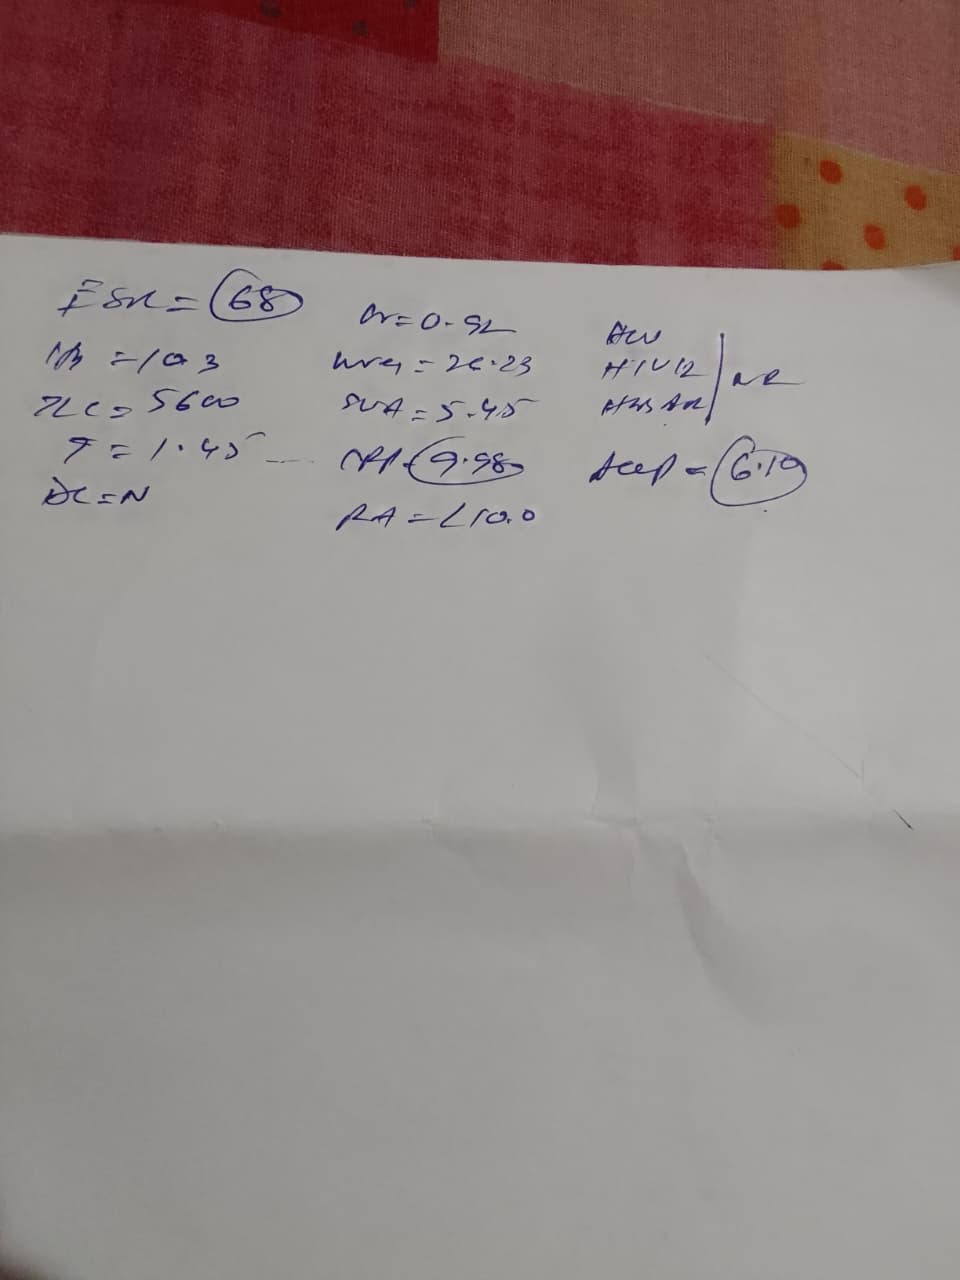 ESR = 68
Hb = 10.3
TLC = 5600
P = 1.45
DC = N
Cr = 0.92
urea = 26.23
SUA = 5.45
= 9.98
RA = <10.0
HCV
HIV 12
HBS Ag
NR
= 6.10